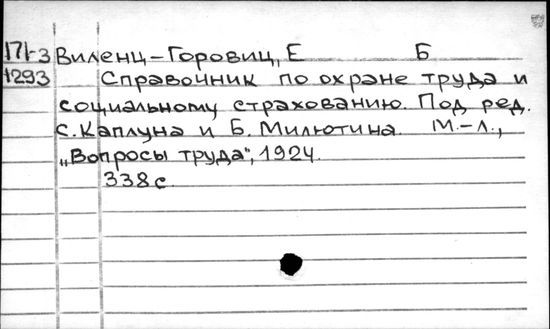 171-3 Виленц-Горовиц, Е Б
1293 Справочник по охране труда и
социальному страхованию. Под ред.
С. Каплуна и Б. Милютина. М.-Л.,
„Вопросы труда", 1924.
338 с.